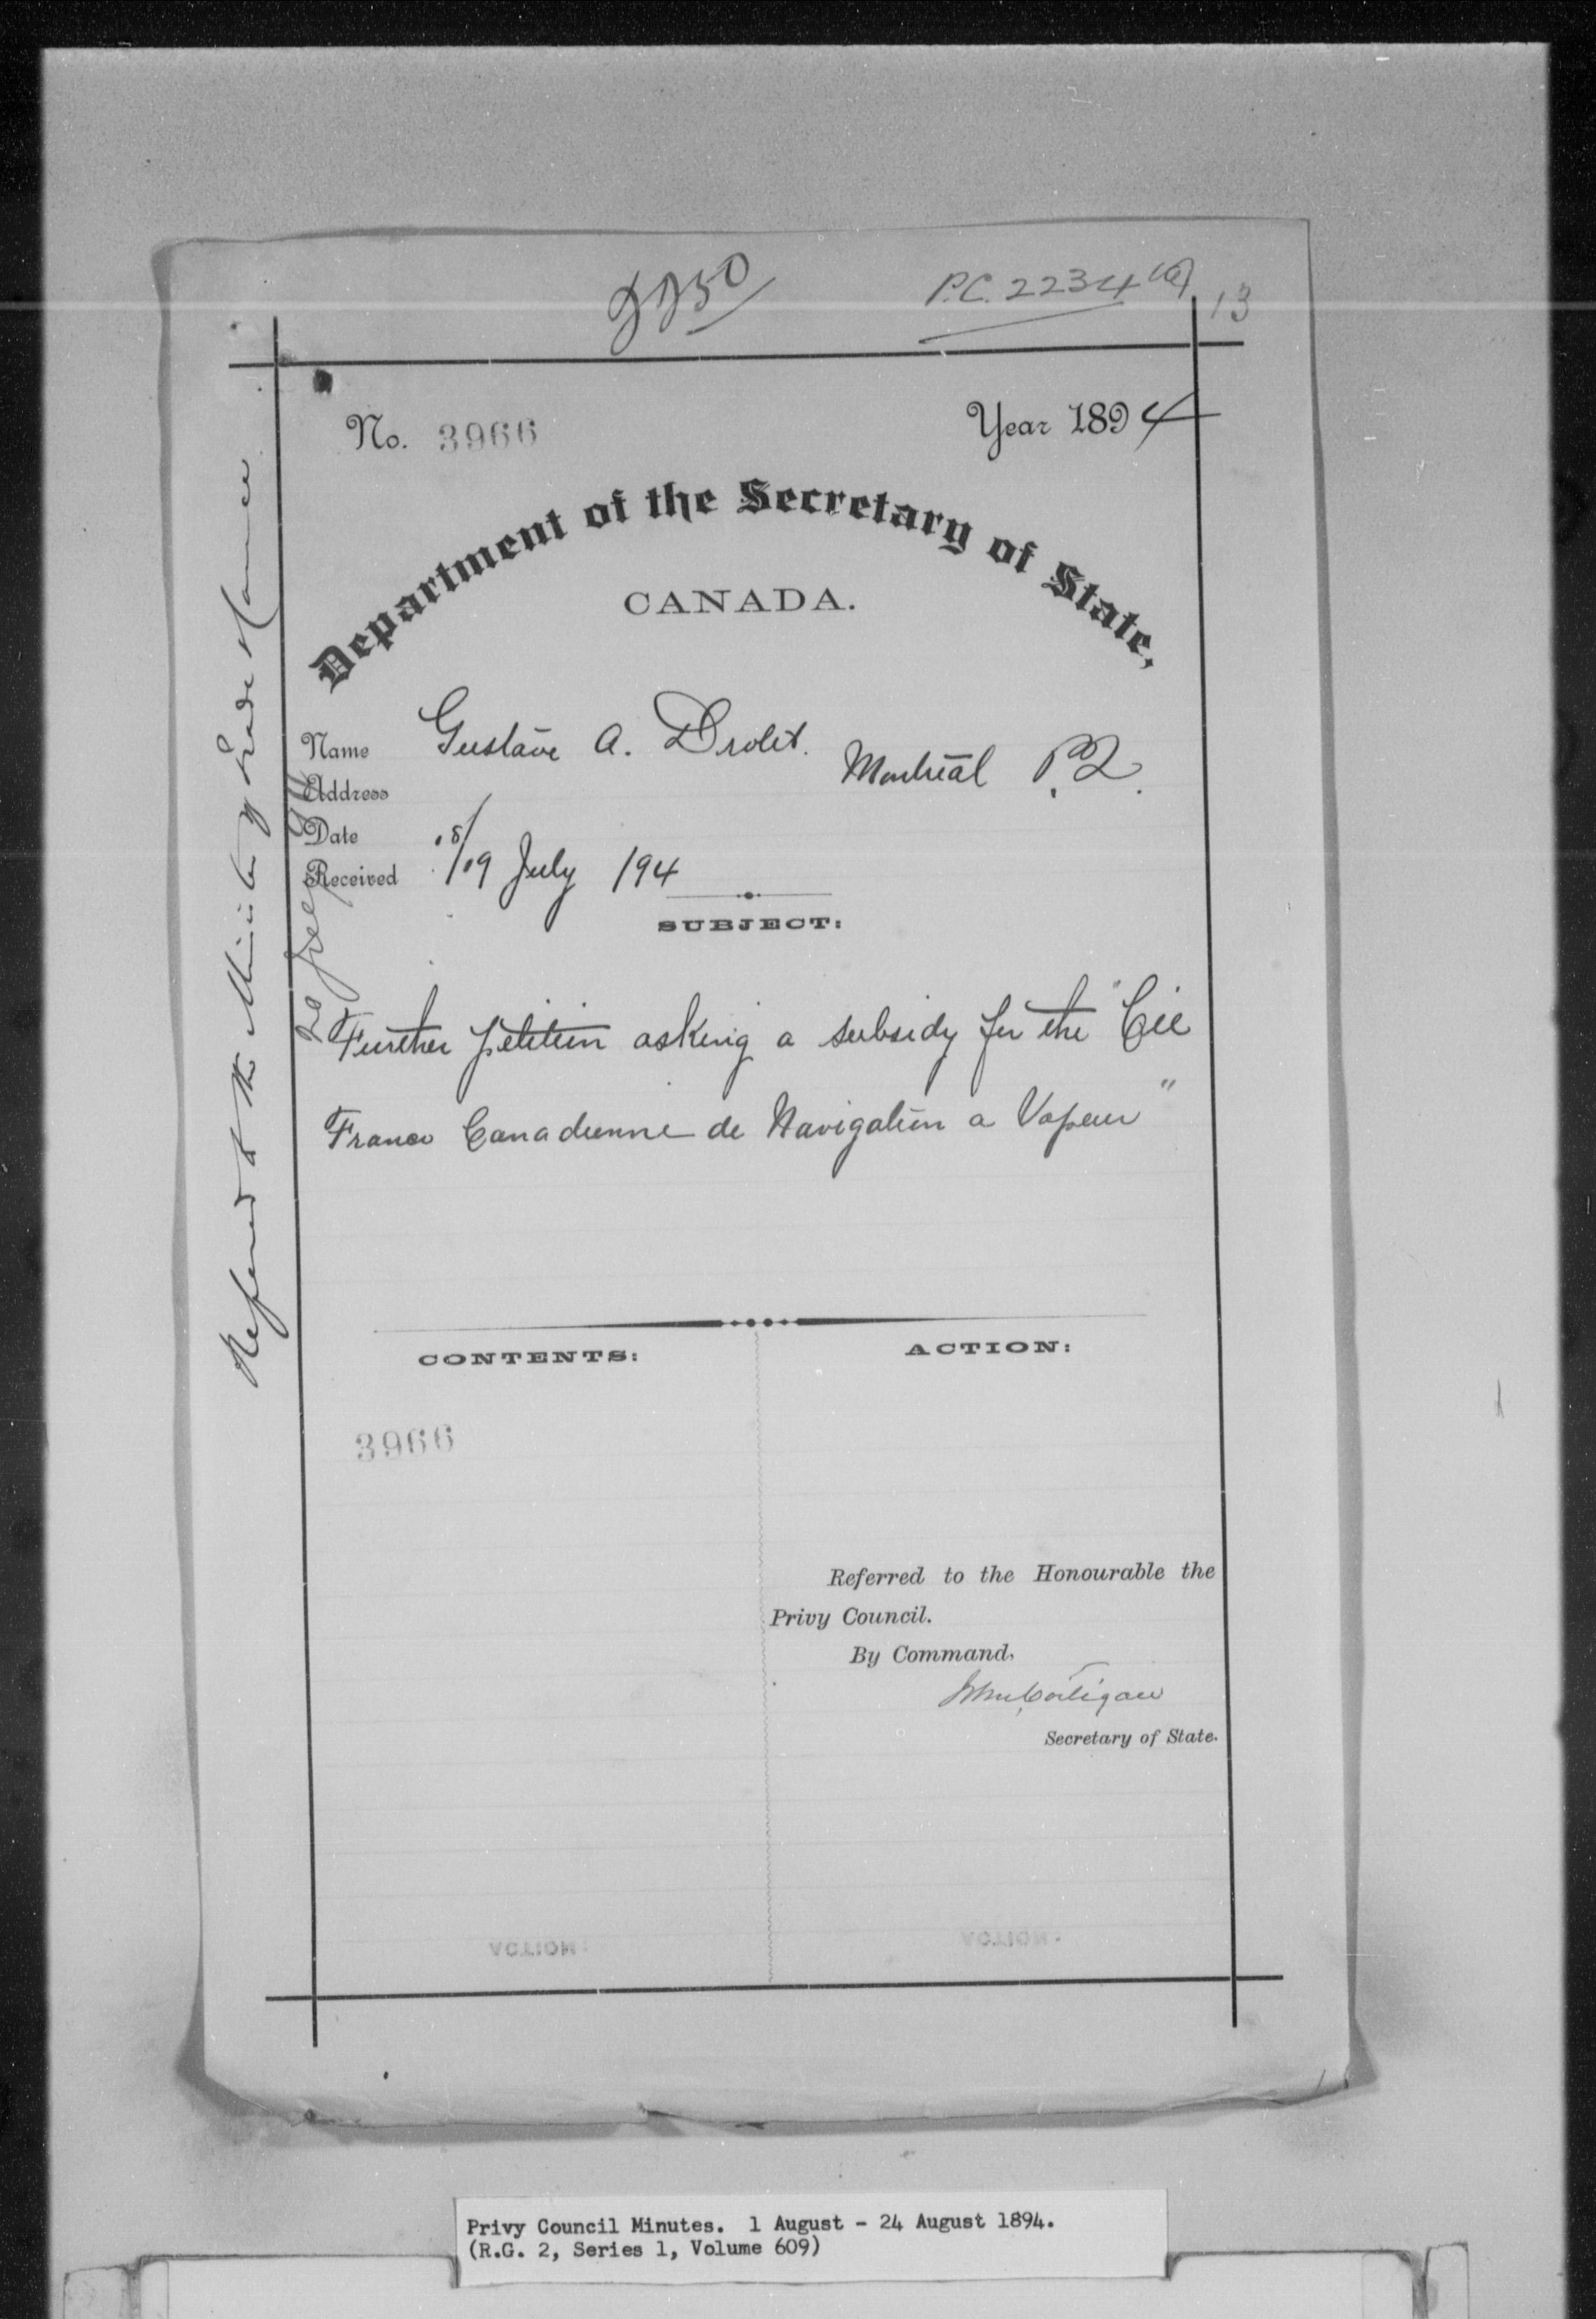 2250
P.C. 2234 (a) 13
No. 3966
Year 1894
Department of the Secretary of State,
CANADA.
Name Gustave A. Drolet. Montreal P.Q.
Address
Date 18/
Received /19 July /94
SUBJECT:
Further petition asking a subsidy for the "Cie
Franco Canadienne de Navigation a Vapeur"
CONTENTS:
ACTION:
3966
Referred to the Honourable the
Privy Council.
By Command,
John Costigan
Secretary of State.
Referred to the Minister of Trade &
20 July 94
Privy Council Minutes. 1 August - 24 August 1894.
(R.G. 2, Series 1, Volume 609)